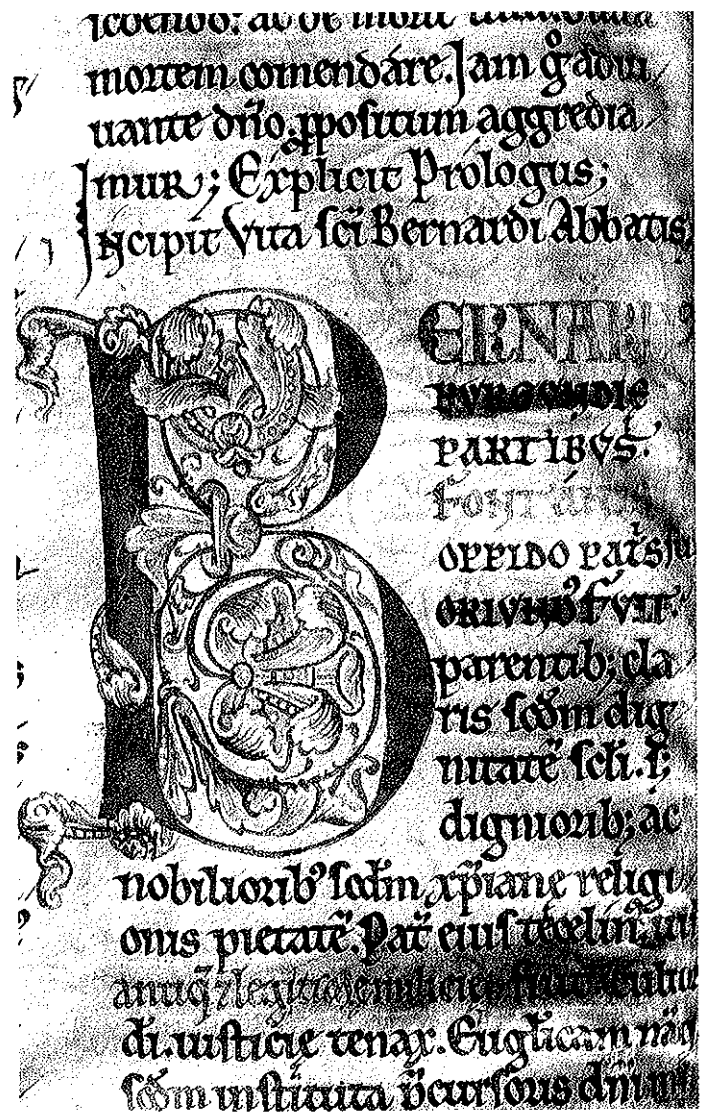 mortem comendare. Jam gͦ adiu
uante dn̄o ꝓpositum aggredia
mur; Explicit Prologus;
Incipit Vita sci Bernardi Abbatis
BERNARD
BVRGONDIE
PARTIBVS.
FONTANIS
OPPIDO PATS
ORIVNDꝰ FVIT.
parentib; cla
ris scdm dig
nitate scli. s;
digniorib; ac
nobilioribꝰ scdm xp̄iane religi
onis pietatē. Pat̄ eius tecelin
antiq̄ ⁊ legitime milicie
di. iusticie tenax. Euglicam nāq
scdm instituta p̄cursoris dn̄i